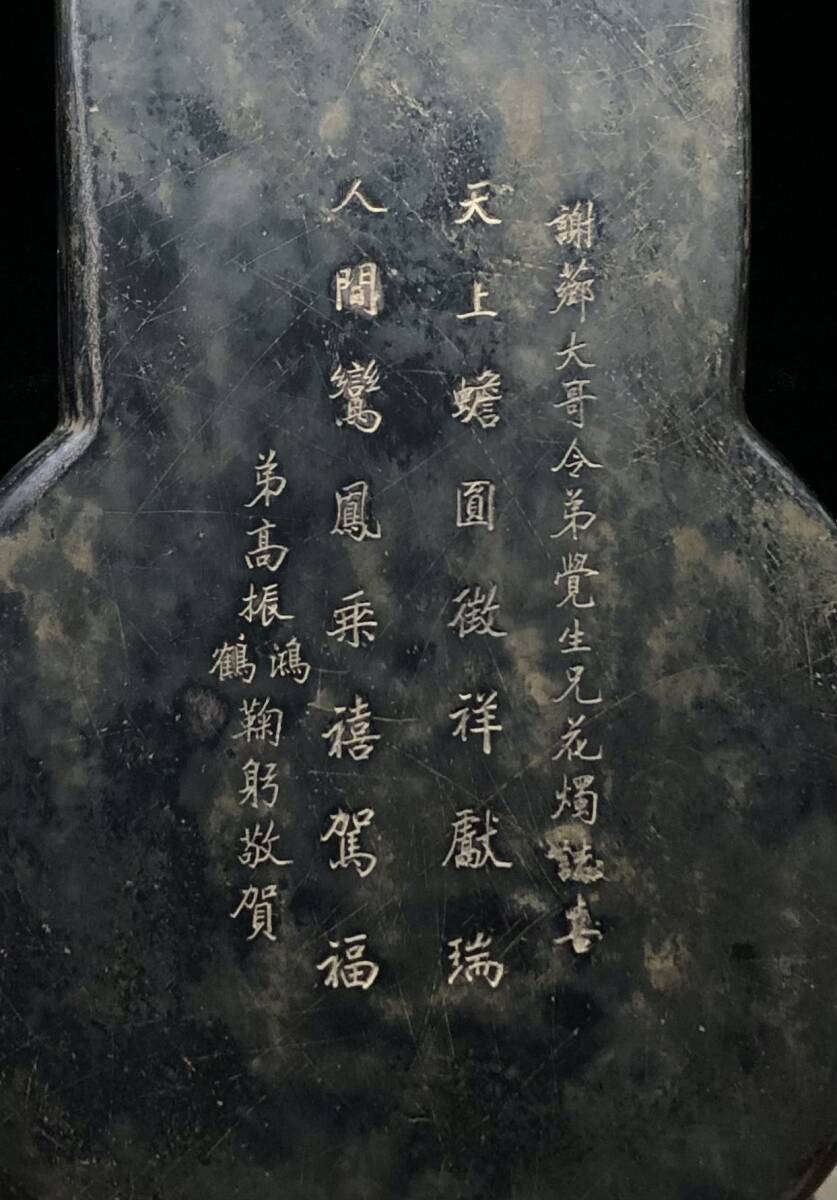 謝薌大哥令弟覺生兄花燭誌喜
天上蟾圓徵祥獻瑞
人間鸞鳳乘禧駕福
弟高振鴻鶴鞠躬敬賀